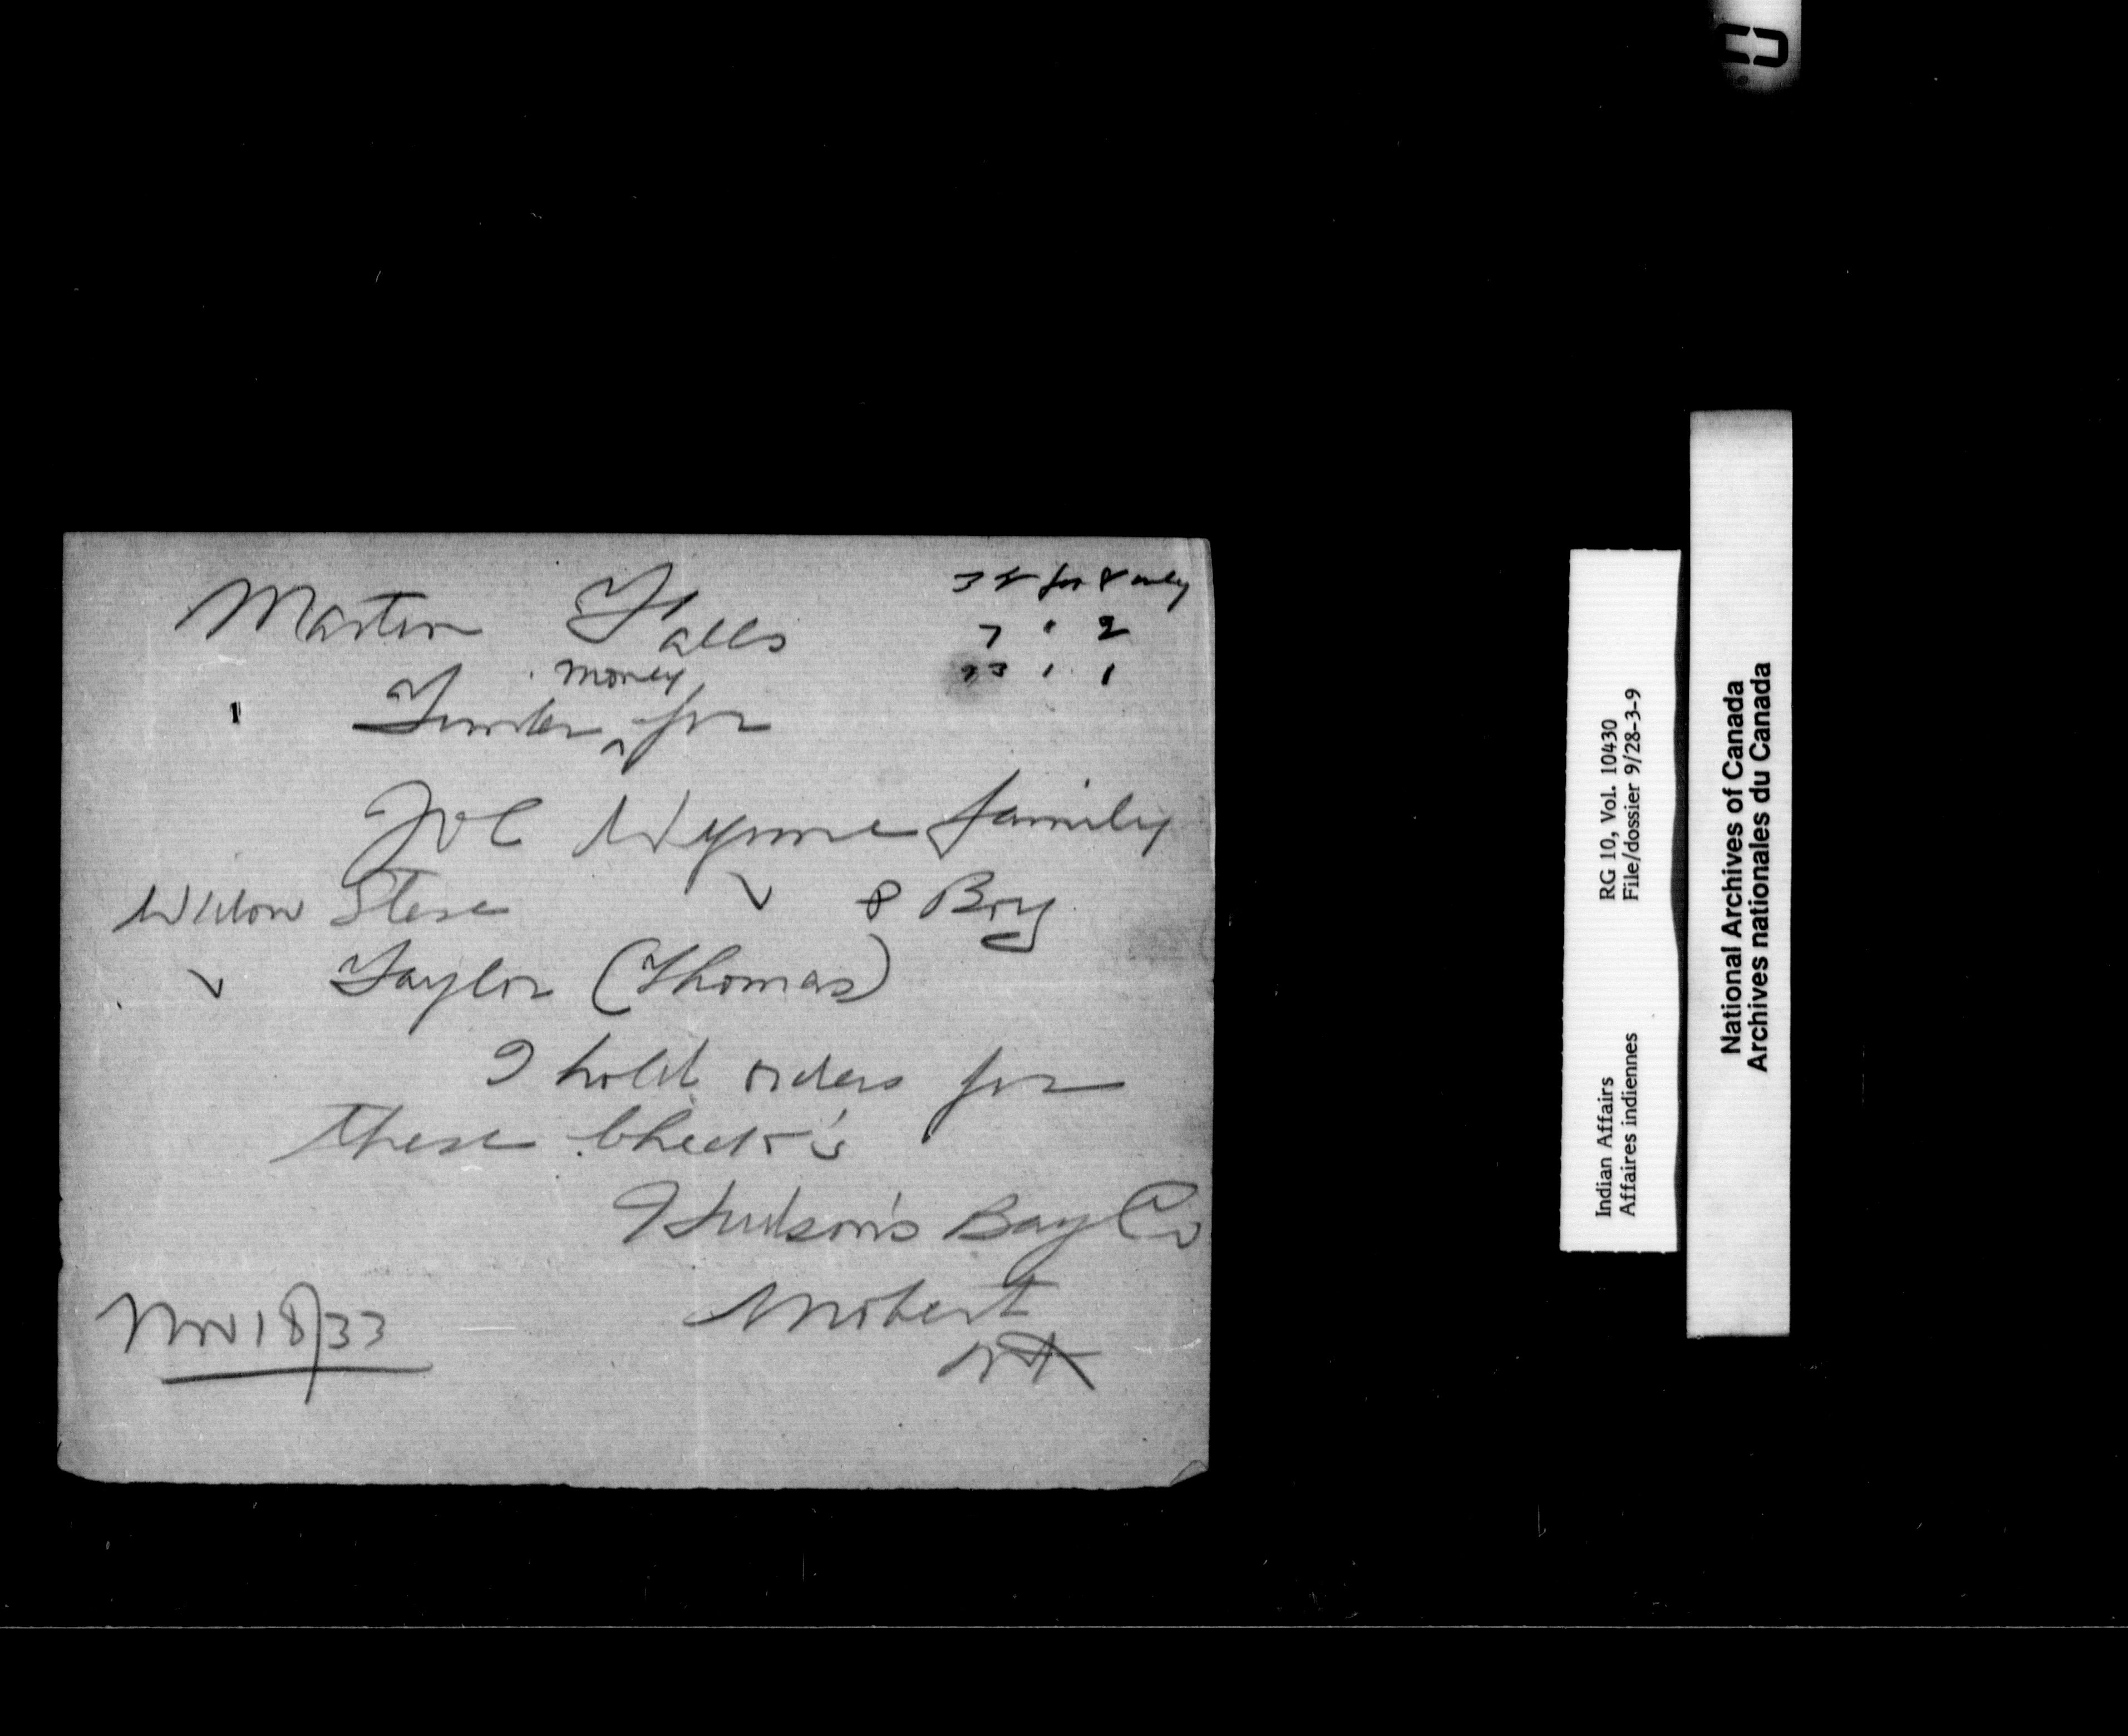 Martin Falls
3 & for 8 only
7 " 2
23 " 1
money
Timber ^ for
Joe Wynne family
Widow Stese ✓ & Boy
✓ Taylor (Thomas)
I hold orders for
these Check's
Hudson's Bay Co
Mobert
Nov 18/33
Indian Affairs RG 10, Vol. 10430
Affaires indiennes File/dossier 9/28-3-9
National Archives of Canada
Archives nationales du Canada